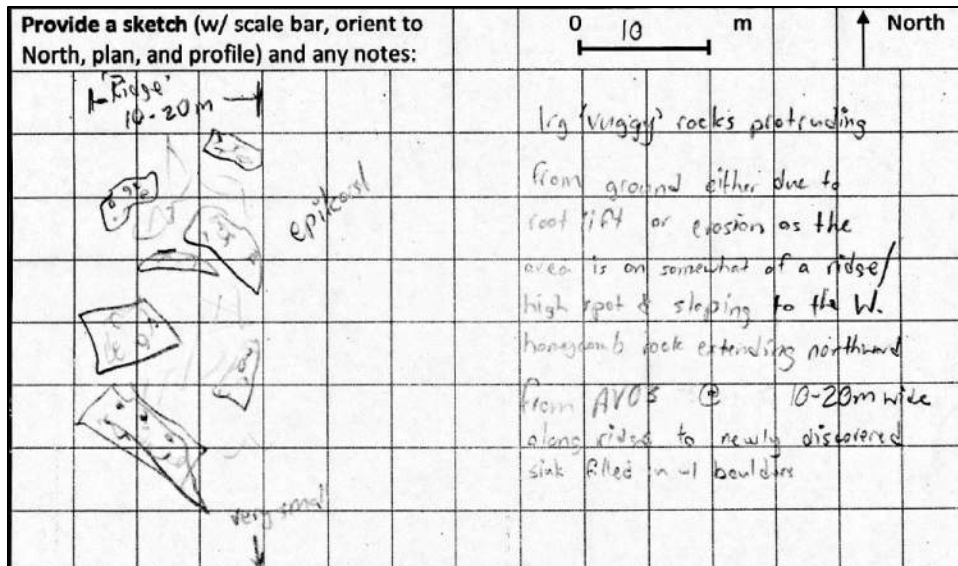 Provide a sketch (w/ scale bar, orient to
North, plan, and profile) and any notes:
0 10 m
North
'Ridge'
10-20m
lrg 'vuggy' rocks protruding
from ground either due to
root lift or erosion as the
area is on somewhat of a ridge/
high spot & sloping to the W.
honeycomb rock extending northward
from @ 10-20m wide
along ridge to newly discovered
sink filled in w/ boulders
very small